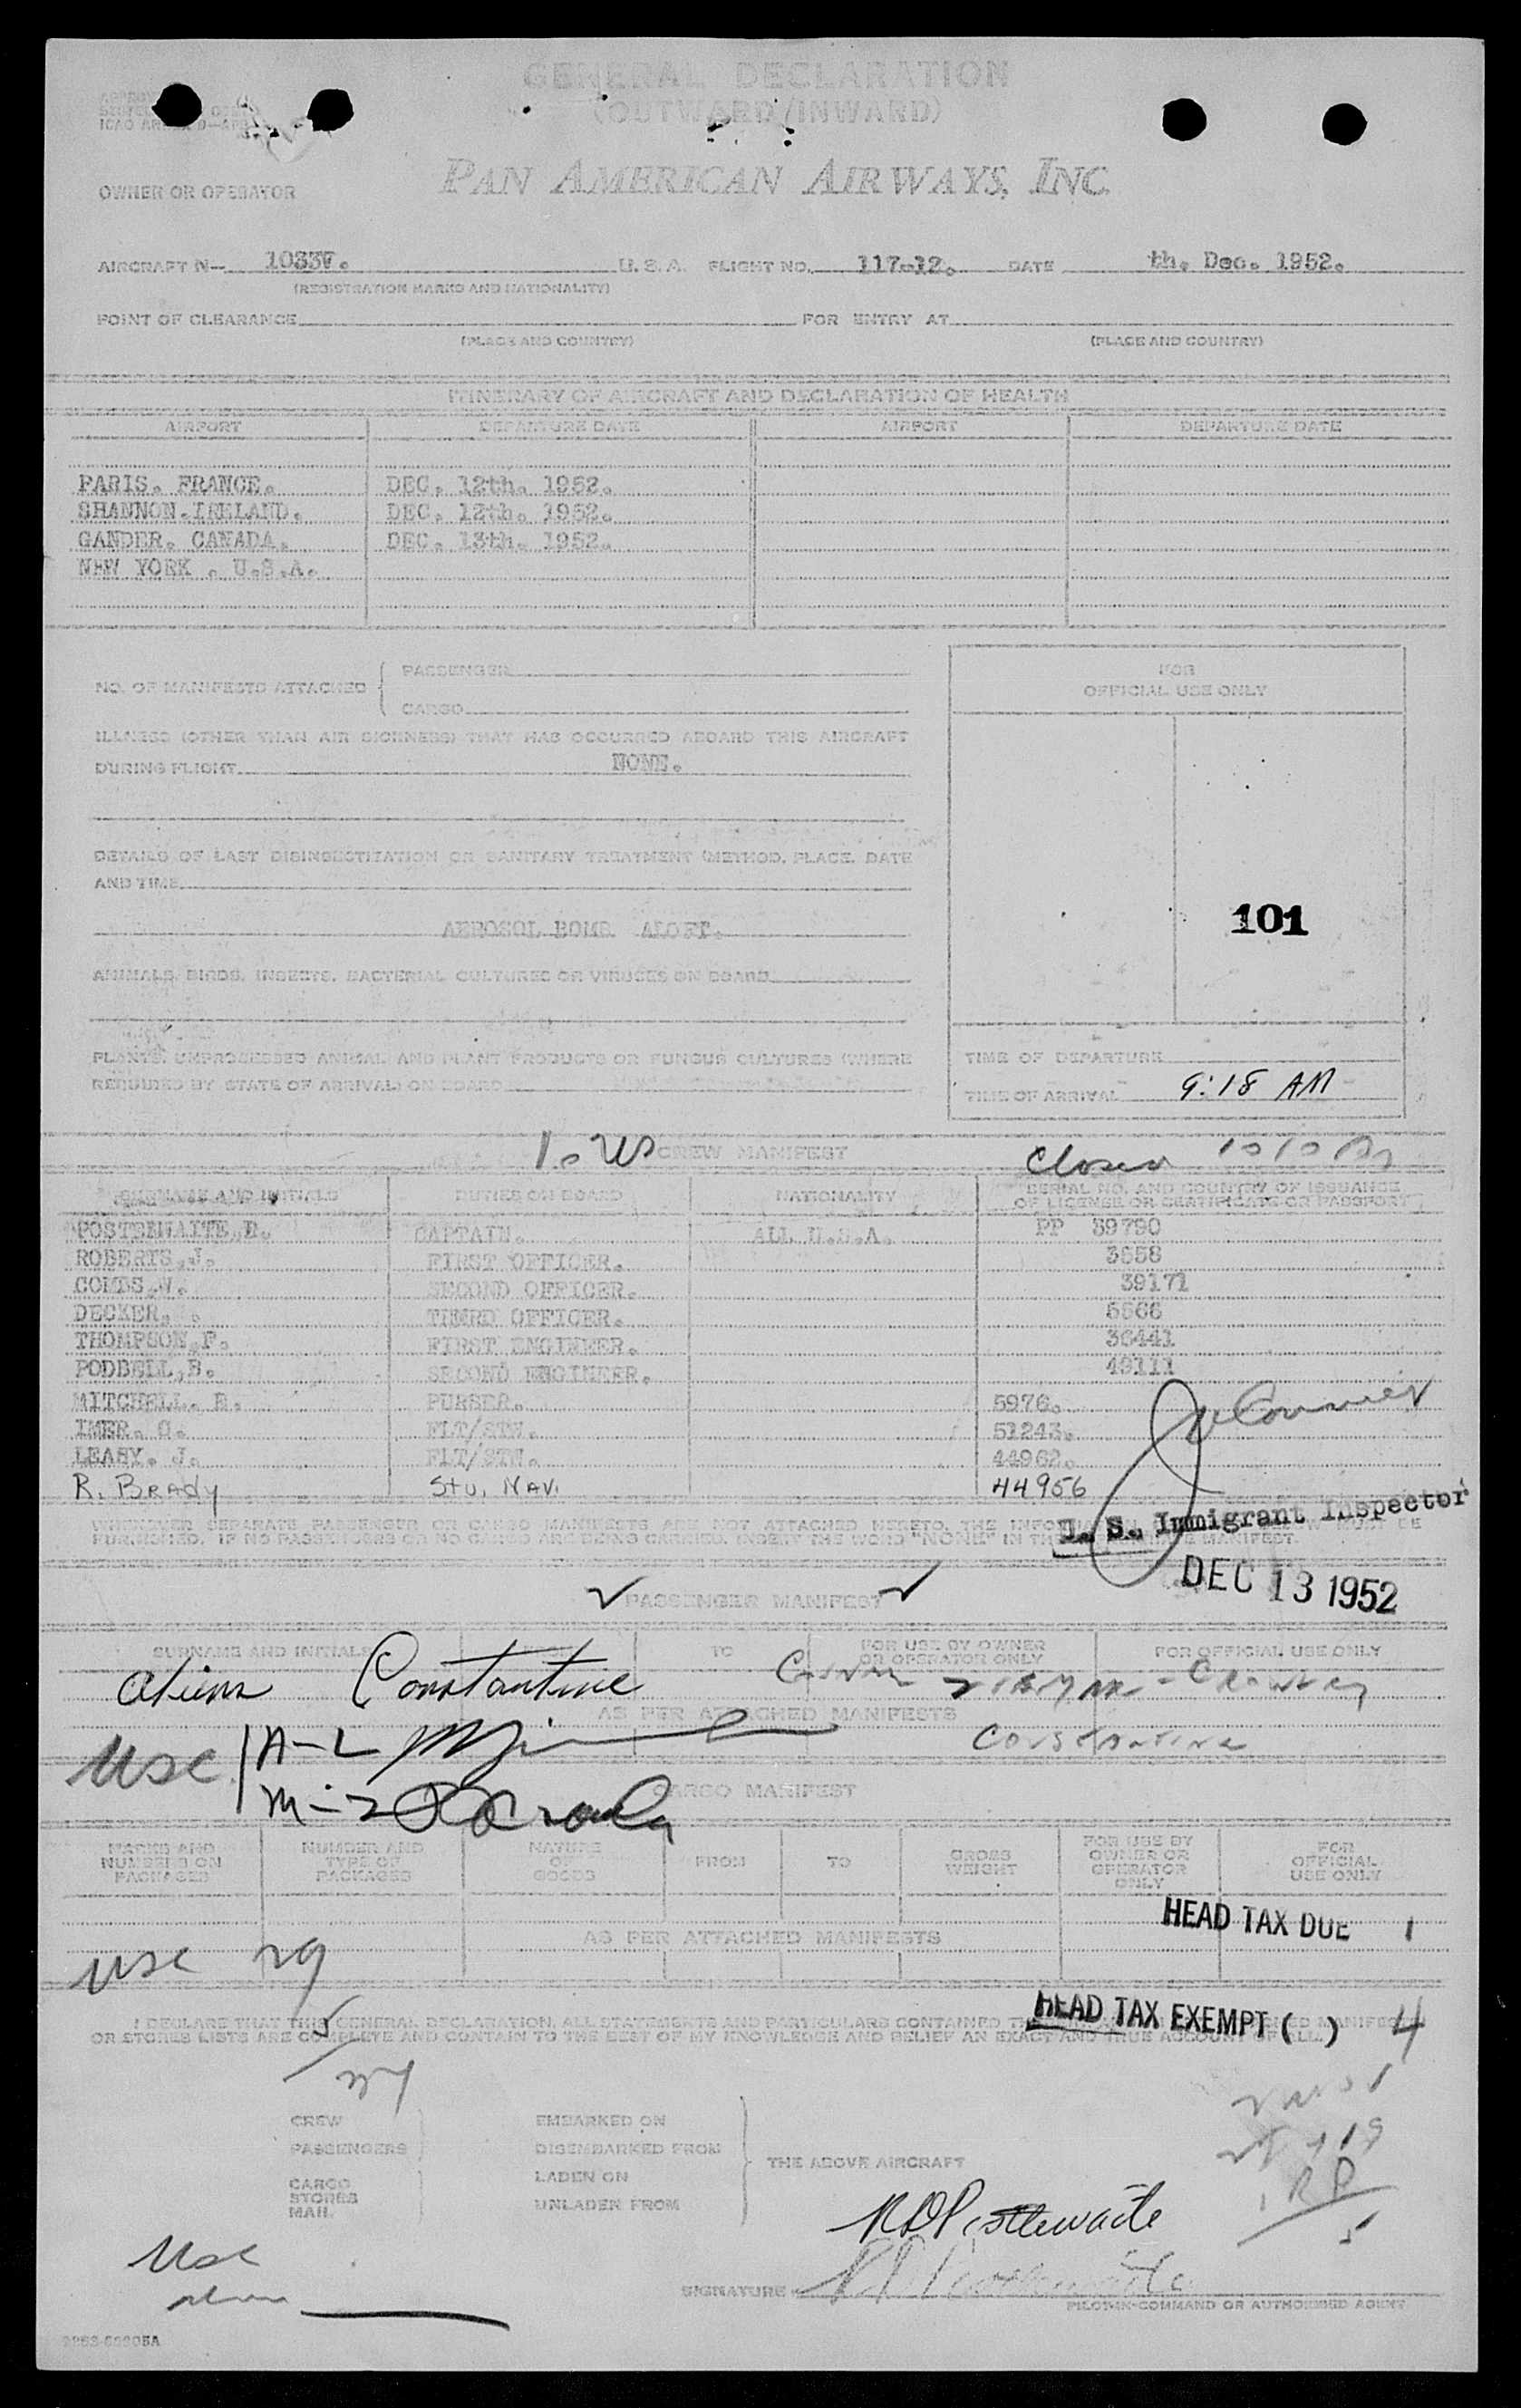 GENERAL DECLARATION
(OUTWARD/INWARD)
OWNER OR OPERATOR PAN AMERICAN AIRWAYS, INC.
AIRCRAFT N- 1033V. U.S.A. FLIGHT NO. 117-12. DATE th. Dec. 1952.
(REGISTRATION MARKS AND NATIONALITY)
POINT OF CLEARANCE FOR ENTRY AT
(PLACE AND COUNTRY) (PLACE AND COUNTRY)
ITINERARY OF AIRCRAFT AND DECLARATION OF HEALTH
AIRPORT DEPARTURE DATE AIRPORT DEPARTURE DATE
PARIS. FRANCE. DEC. 12th. 1952.
SHANNON.IRELAND. DEC. 12th. 1952.
GANDER. CANADA. DEC. 13th. 1952.
NEW YORK . U.S.A.
NO. OF MANIFESTS ATTACHED
PASSENGER
CARGO
FOR
OFFICIAL USE ONLY
ILLNESS (OTHER THAN AIR SICKNESS) THAT HAS OCCURRED ABOARD THIS AIRCRAFT
DURING FLIGHT NONE.
DETAILS OF LAST DISINSECTIZATION OR SANITARY TREATMENT (METHOD, PLACE, DATE
AND TIME
101
AEROSOL BOMB ALOFT.
ANIMALS, BIRDS, INSECTS, BACTERIAL CULTURES OR VIRUSES ON BOARD
PLANTS, UNPROCESSED ANIMAL AND PLANT PRODUCTS OR FUNGUS CULTURES (WHERE
REQUIRED BY STATE OF ARRIVAL) ON BOARD
TIME OF DEPARTURE
TIME OF ARRIVAL 9:18 AM
CREW MANIFEST Closed 1010
SURNAME AND INITIALS DUTIES ON BOARD NATIONALITY SERIAL NO. AND COUNTRY OF ISSUANCE
OF LICENSE OR CERTIFICATE OR PASSPORT
POSTEWAITE.R. CAPTAIN. ALL U.S.A. PP 39790
ROBERTS.J. FIRST OFFICER. 3658
COMBS.W. SECOND OFFICER. 39171
DECKER. THIRD OFFICER. 5566
THOMPSON.F. FIRST ENGINEER. 36441
PODBELL,B. SECOND ENGINEER. 49111
MITCHELL. R. PURSER. 5976.
IMER. O. FLT/STW. 51243.
LEAHY. J. FLT/STW. 44962.
R. BRADY STU. NAV. 44956
WHENEVER SEPARATE PASSENGER OR CARGO MANIFESTS ATTACHED HERETO, THE
FURNISHED. IF NO PASSENGERS OR NO CARGO ARE BEING CARRIED, INSERT THE WORD "NONE" IN MANIFEST.
U. S. Immigrant Inspector
DEC 13 1952
PASSENGER MANIFEST
SURNAME AND INITIALS TO FOR USE BY OWNER
OR OPERATOR ONLY FOR OFFICIAL USE ONLY
Aliens Constantine
AS PER ATTACHED MANIFESTS
USC A-L
M-Z
CARGO MANIFEST
MARKS AND
NUMBERS ON
PACKAGES
NUMBER AND
TYPE OF
PACKAGES
NATURE
OF
GOODS
FROM
TO
GROSS
WEIGHT
FOR USE BY
OWNER OR
OPERATOR
ONLY
FOR
OFFICIAL
USE ONLY
HEAD TAX DUE 1
AS PER ATTACHED MANIFESTS
USC 29
HEAD TAX EXEMPT ( ) 4
I DECLARE THAT THIS GENERAL DECLARATION, ALL STATEMENTS AND PARTICULARS CONTAINED
OR STORES LISTS ARE COMPLETE AND CONTAIN TO THE BEST OF MY KNOWLEDGE AND BELIEF AN EXACT AND TRUE ACCOUNT OF ALL.
CREW
PASSENGERS
CARGO
STORES
MAIL
EMBARKED ON
DISEMBARKED FROM
LADEN ON
UNLADEN FROM
THE ABOVE AIRCRAFT
R D Postewaite
USC
SIGNATURE
PILOT-IN-COMMAND OR AUTHORIZED AGENT